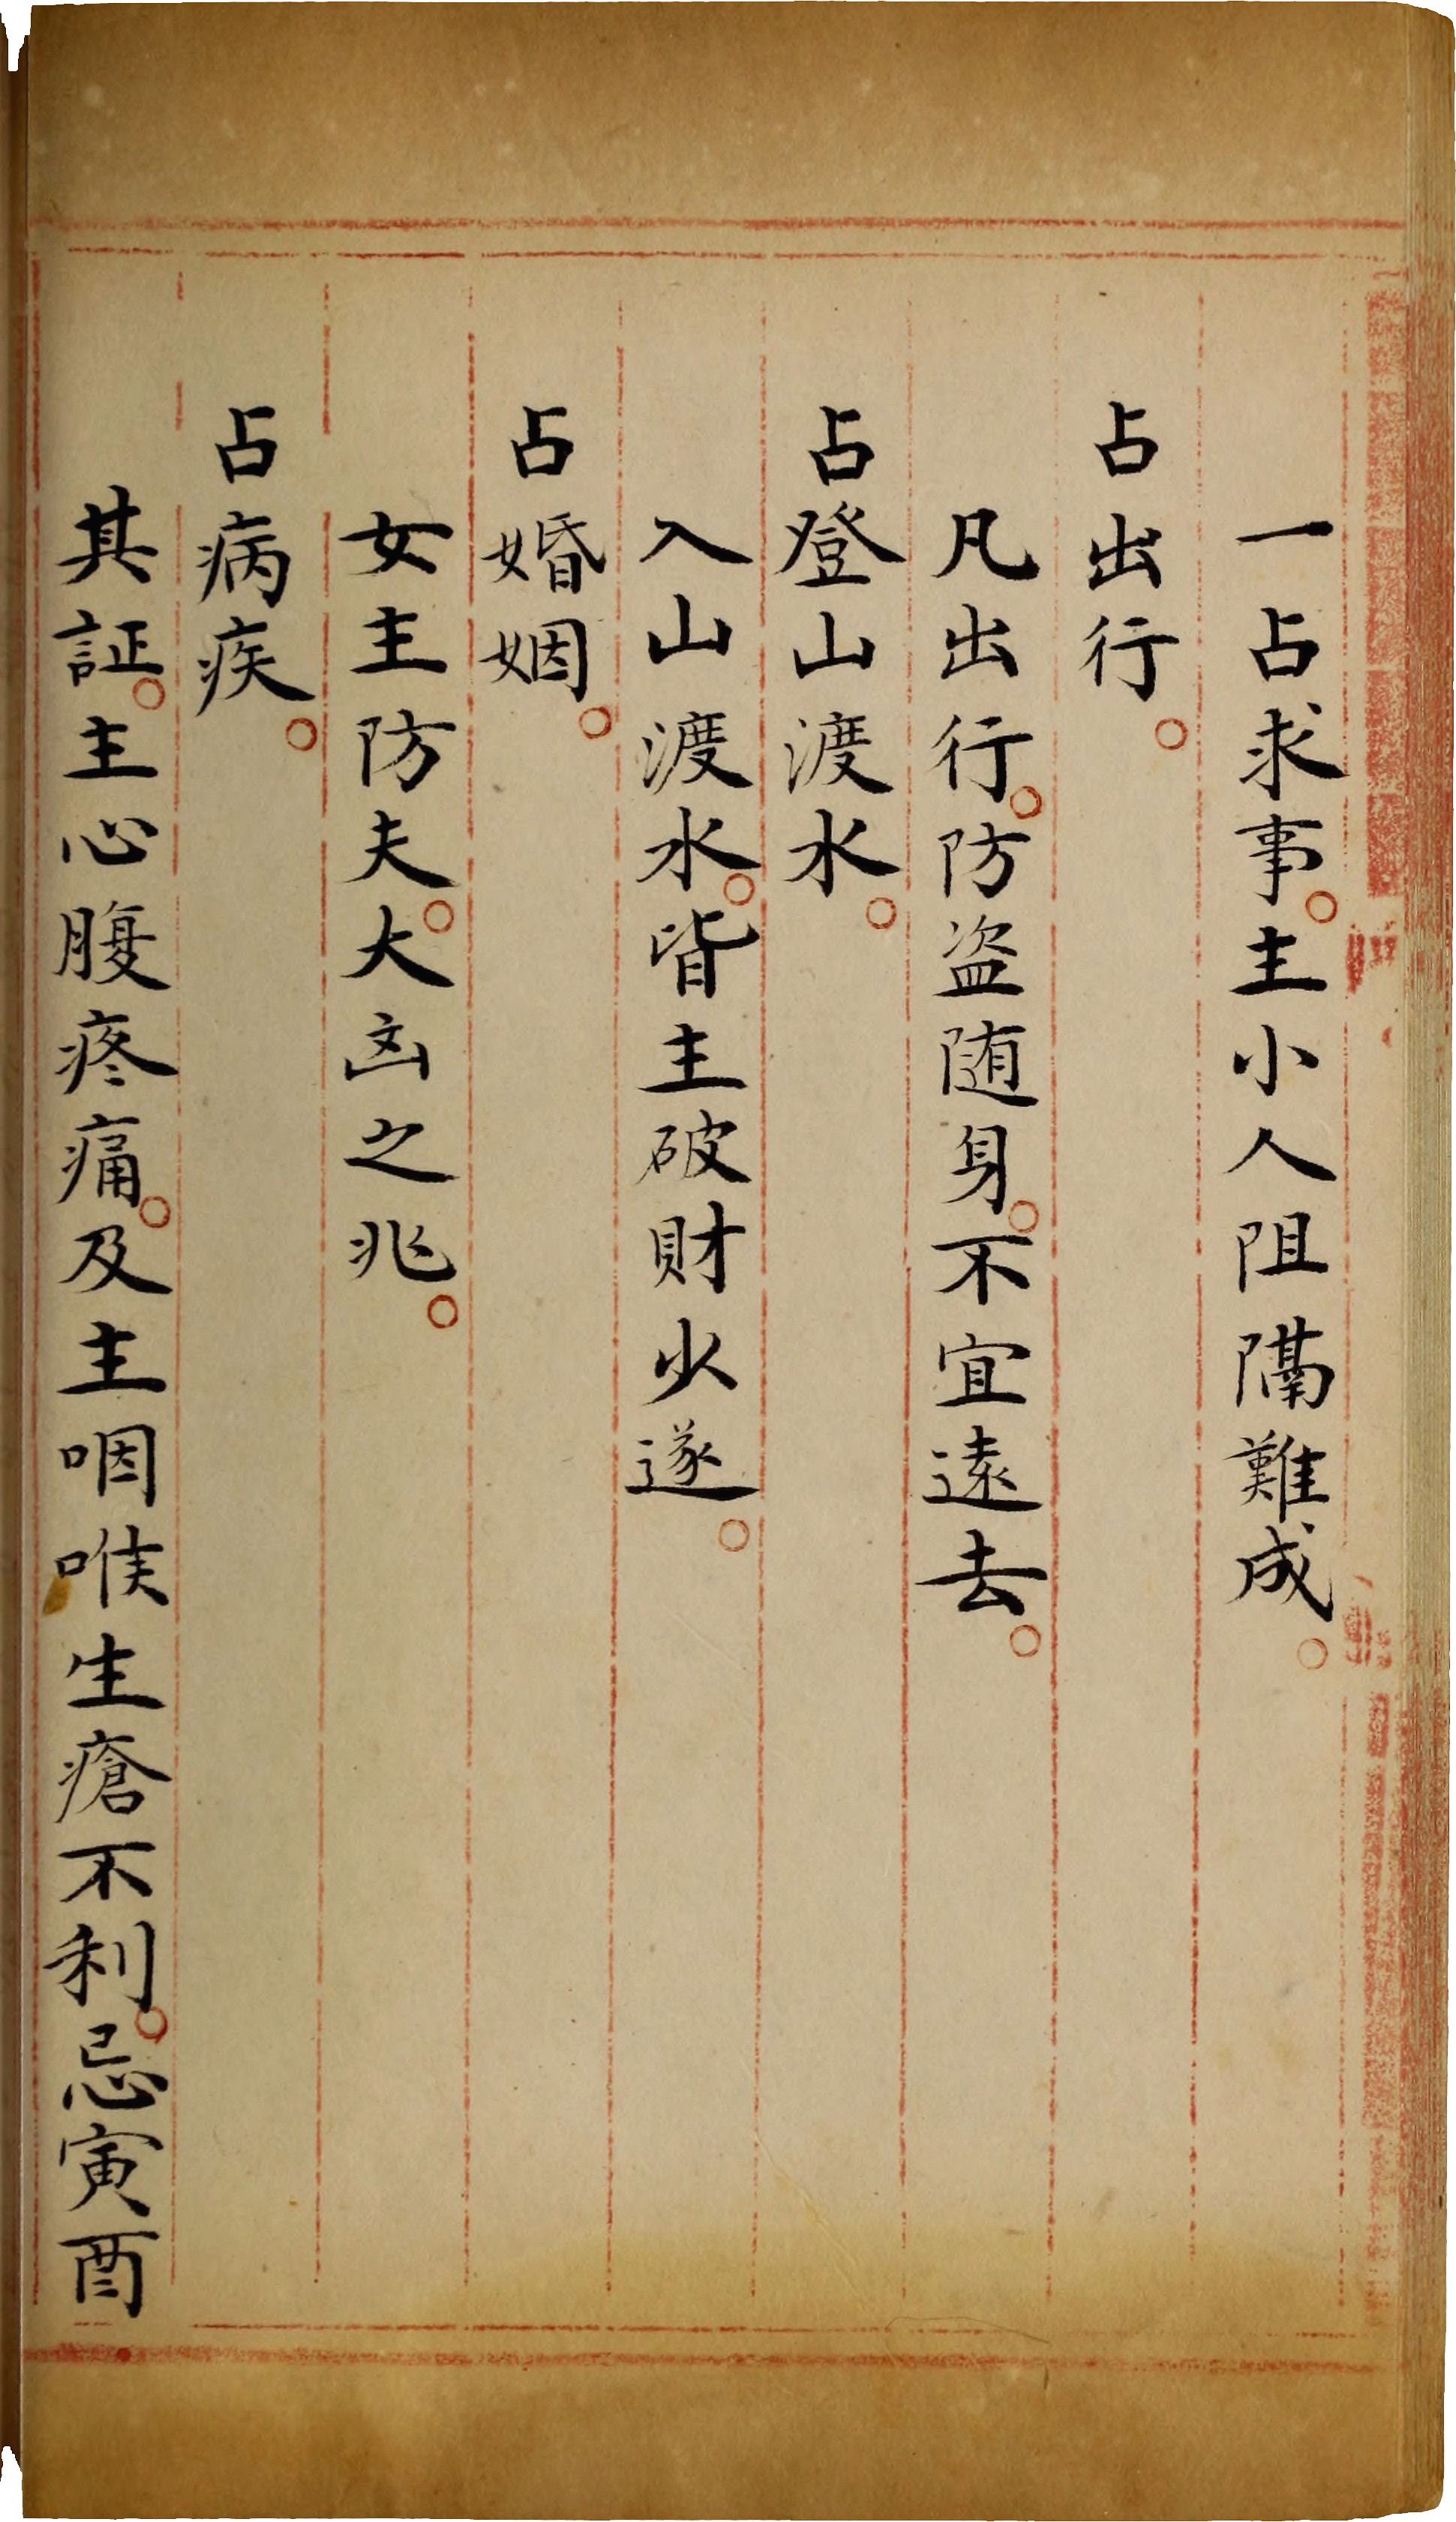 一占求事。主小人阻隔難成。
占出行。
凡出行。防盗随身。不宜遠去。
占登山渡水。
入山渡水。皆主破財少遂。
占婚姻。
女主防夫。大凶之兆。
占病疾。
其証。主心腹疼痛。及主咽喉生瘡不利。忌寅酉